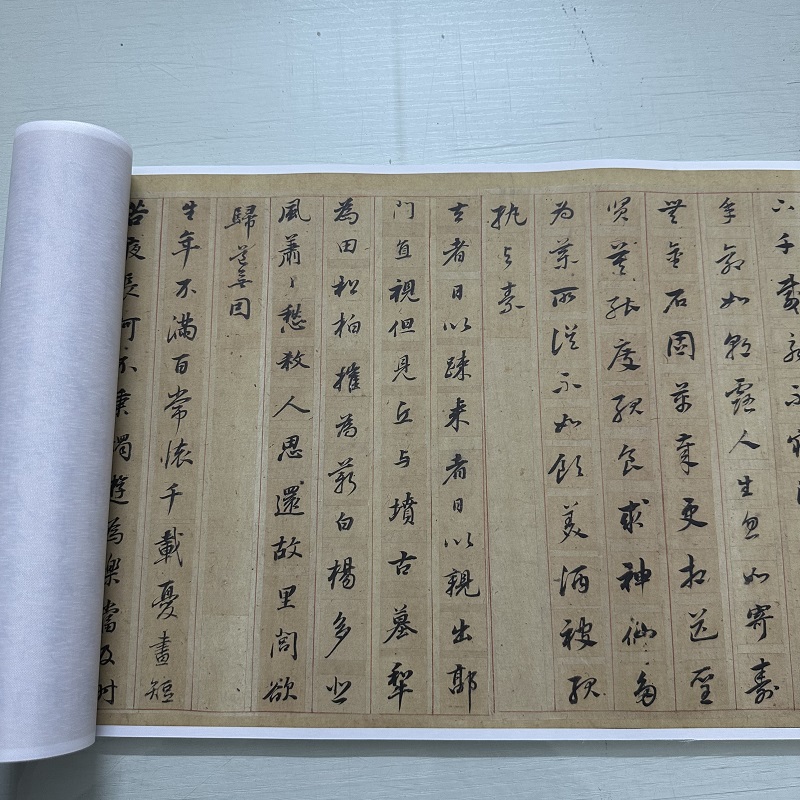 下千載永不寤
年命如朝露人生忽如寄壽
無金石固萬年更相送聖
賢莫能度服食求神仙多
为藥所誤不如飲美酒被服
紈与素
去者日以疎来者日以親出郭
門直視但見丘与墳古墓犁
為田松柏摧為薪白楊多悲
風蕭〻愁殺人思還故里閭欲
歸道無因
生年不滿百常懷千載憂晝短
苦夜長何不秉燭遊為樂當及时